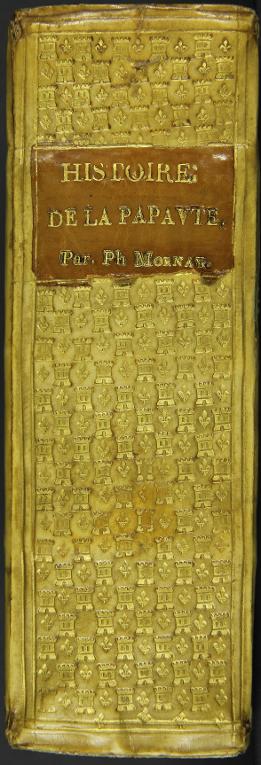 HISTOIRE
DE LA PAPAVTE.
Par. Ph MORNAY.